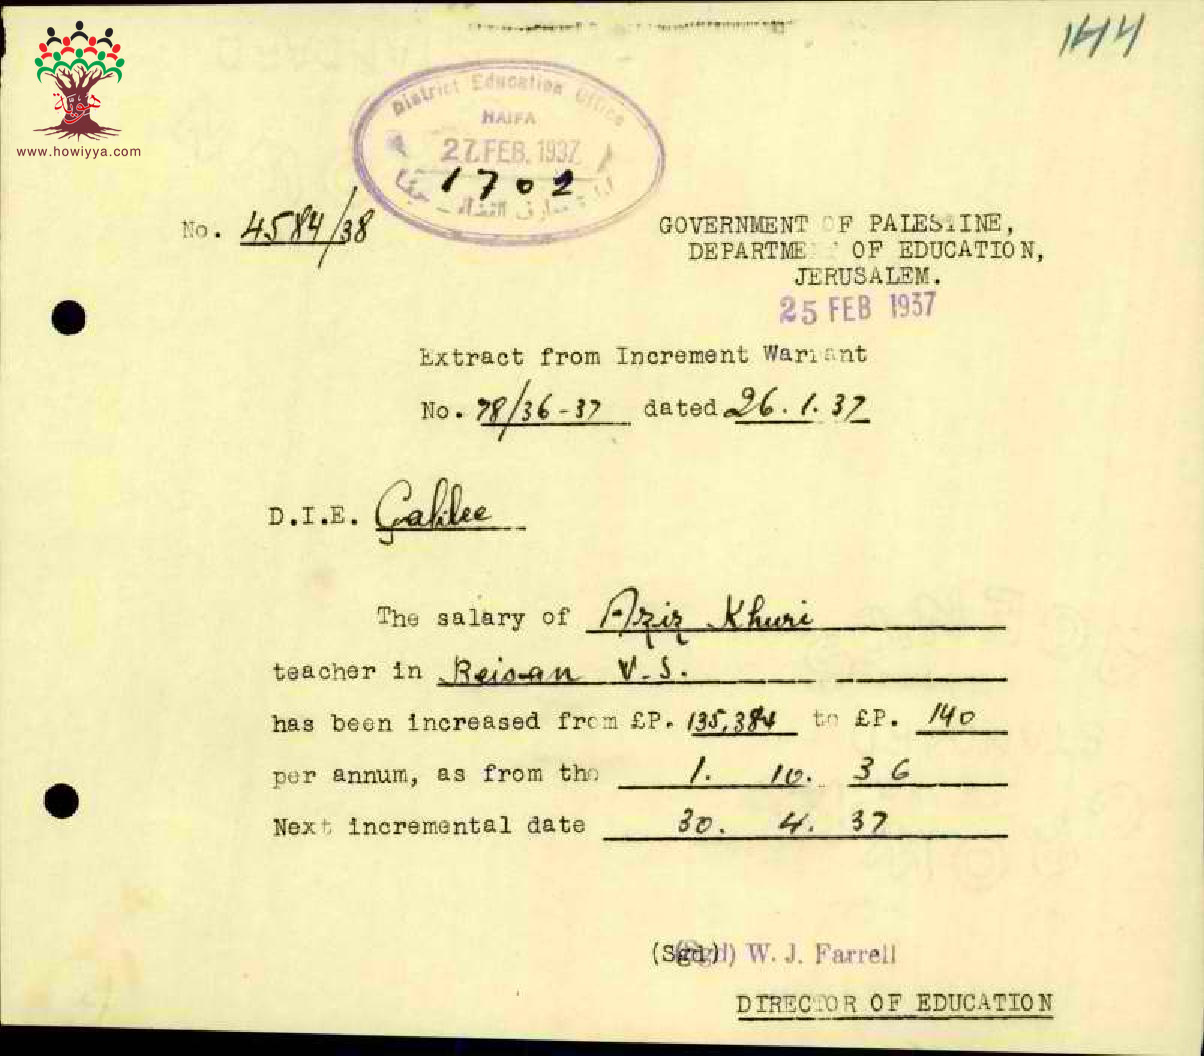 144
هوية
www.howiyya.com
District Education Office
HAIFA
27 FEB. 1937
1702
No. 4584/38
GOVERNMENT OF PALESTINE,
DEPARTMENT OF EDUCATION,
JERUSALEM.
25 FEB 1937
Extract from Increment Warrant
No. 78/36-37 dated 26.1.37
D.I.E. Galilee
The salary of Aziz Khuri
teacher in Beisan V.S.
has been increased from £P. 135,384 to £P. 140
per annum, as from the 1. 10. 36
Next incremental date 30. 4. 37
(Sgd) (Sgd) W. J. Farrell
DIRECTOR OF EDUCATION